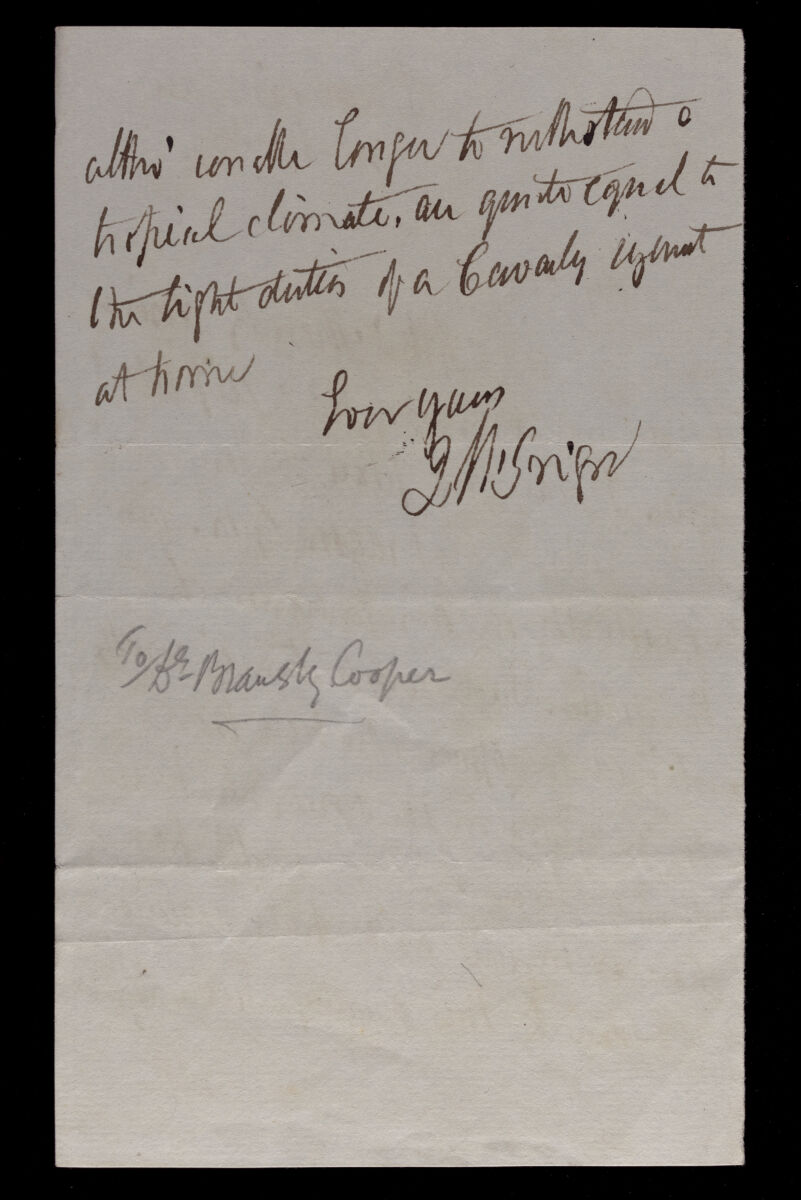 altho' unable longer to withstand a
tropical climate, are quite equal to
the light duties of a Cavalry regiment
at home
Ever yours
J McGrigor
To Dr Bransby Cooper